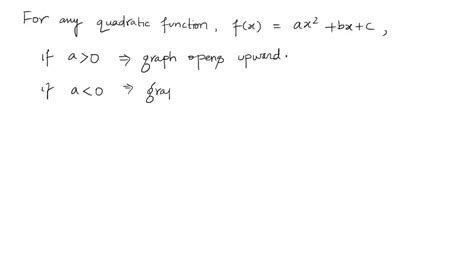 For any quadratic function, f(x) = ax² + bx + c,
if a>0 ⇒ graph opens upward.
if a<0 ⇒ grap